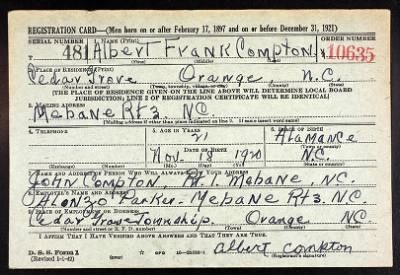 REGISTRATION CARD—(Men born on or after February 17, 1897 and on or before December 31, 1921)
SERIAL NUMBER 1. NAME (Print) ORDER NUMBER
T 481 Albert Frank Compton 10635
2. PLACE OF RESIDENCE (Print)
Cedar Grove Orange, N.C.
(Number and street) (Town, township, village, or city) (County) (State)
[THE PLACE OF RESIDENCE GIVEN ON THE LINE ABOVE WILL DETERMINE LOCAL BOARD
JURISDICTION; LINE 2 OF REGISTRATION CERTIFICATE WILL BE IDENTICAL]
3. MAILING ADDRESS
Mebane Rt 3, N.C.
[Mailing address if other than place indicated on line 2. If same insert word same]
4. TELEPHONE 5. AGE IN YEARS 6. PLACE OF BIRTH
21 Alamance
DATE OF BIRTH (Town or county)
Nov. 18 1920 N.C.
(Exchange) (Number) (Mo.) (Day) (Yr.) (State or country)
7. NAME AND ADDRESS OF PERSON WHO WILL ALWAYS KNOW YOUR ADDRESS
John Compton, Rt. 1. Mebane, N.C.
8. EMPLOYER'S NAME AND ADDRESS
Alonzo Parker - Mebane Rt 3. N.C.
9. PLACE OF EMPLOYMENT OR BUSINESS
Cedar Grove Township. Orange N.C.
(Number and street or R. F. D. number) (Town) (County) (State)
I AFFIRM THAT I HAVE VERIFIED ABOVE ANSWERS AND THAT THEY ARE TRUE.
D. S. S. Form 1 GPO
(Revised 1-1-42) albert compton